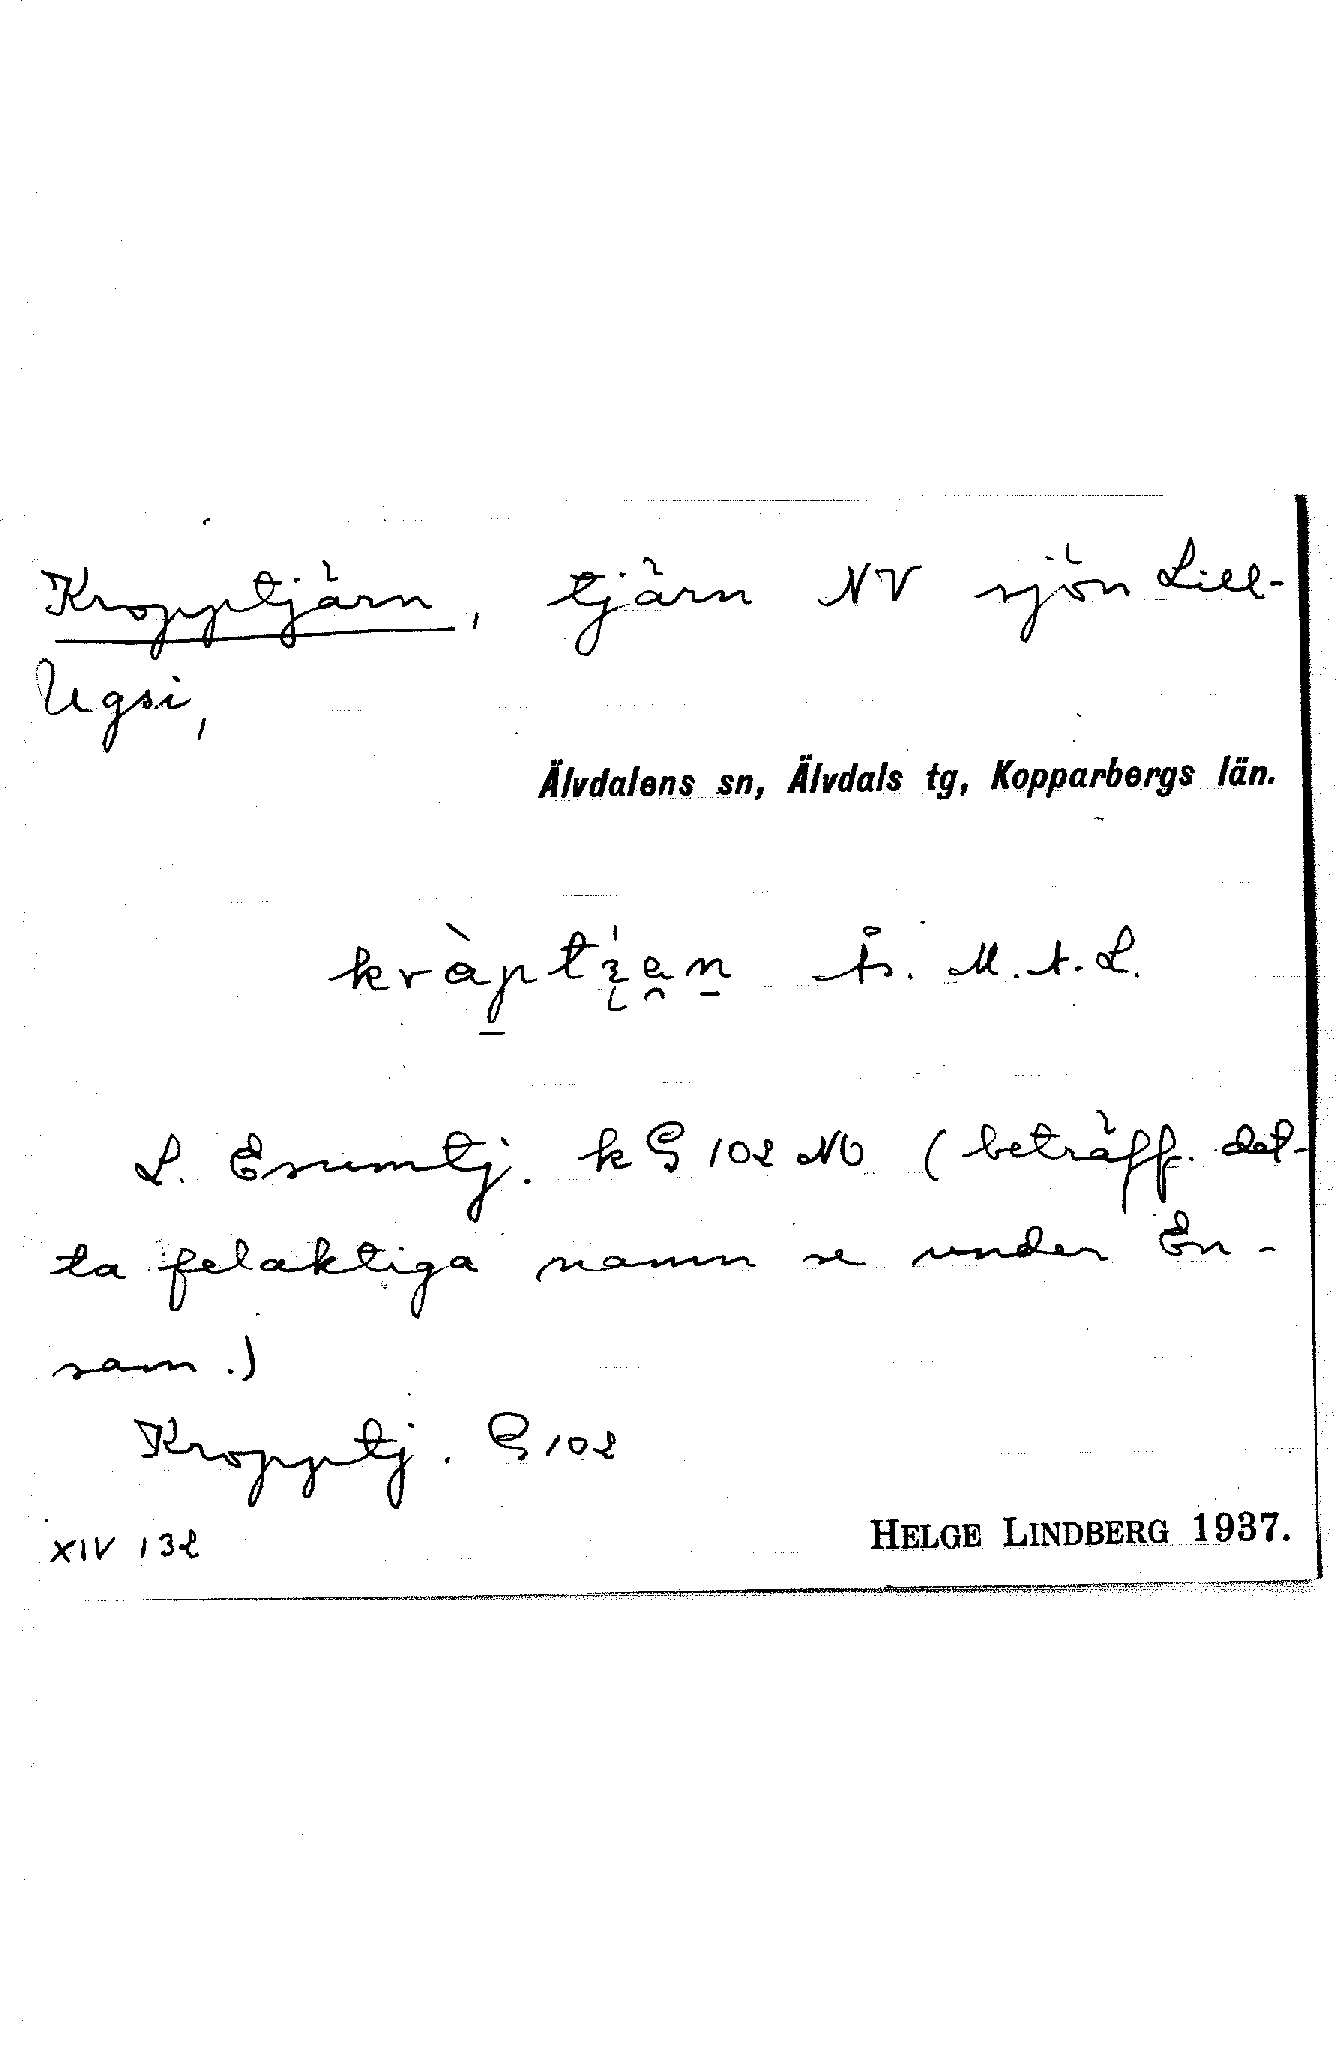 Kropptjärn, tjärn NV sjön Lill-
Ugsi,
Älvdalens sn, Älvdals tg, Kopparbergs län.
Ås. M.A.L.
L. Esumtj. k G 102 NO (beträff. det-
ta felaktiga namn se under En-
sam.)
Kropptj. G 102
XIV 132
HELGE LINDBERG 1937.